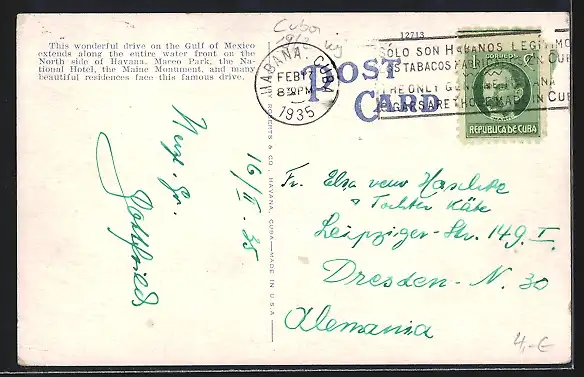 This wonderful drive on the Gulf of Mexico
extends along the entire water front on the
North side of Havana. Marco Park, the Na-
tional Hotel, the Maine Monument, and many
beautiful residences face this famous drive.
Cuba
12713
HABANA, CUBA
FEB 17
8:30 PM
1935
SOLO SON HABANOS LEGITIMOS
TABACOS FABRI EN CUBA
THE ONLY HAVANA
CIGARS ARE THOSE MADE IN CUBA
POST
CARD
CORREOS
REPUBLICA DE CUBA
ROBERTS & CO., HAVANA, CUBA—MADE IN U.S.A.
16/II.35
Herzl. Gr.
Fr. Elsa verw Haschke
Tochter Käte
Leipziger-Str. 149 I.
Dresden-N. 30
Alemania
4,-€